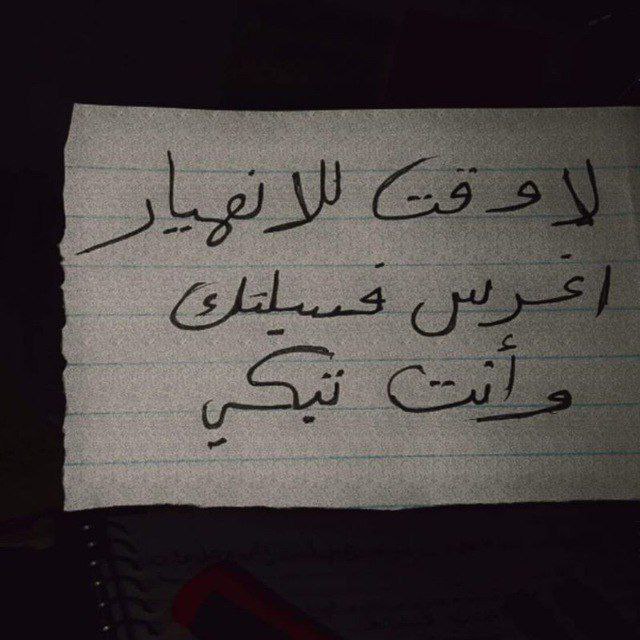 لا وقت للانهيار
اغرس فسيلتك
وأنت تبكي